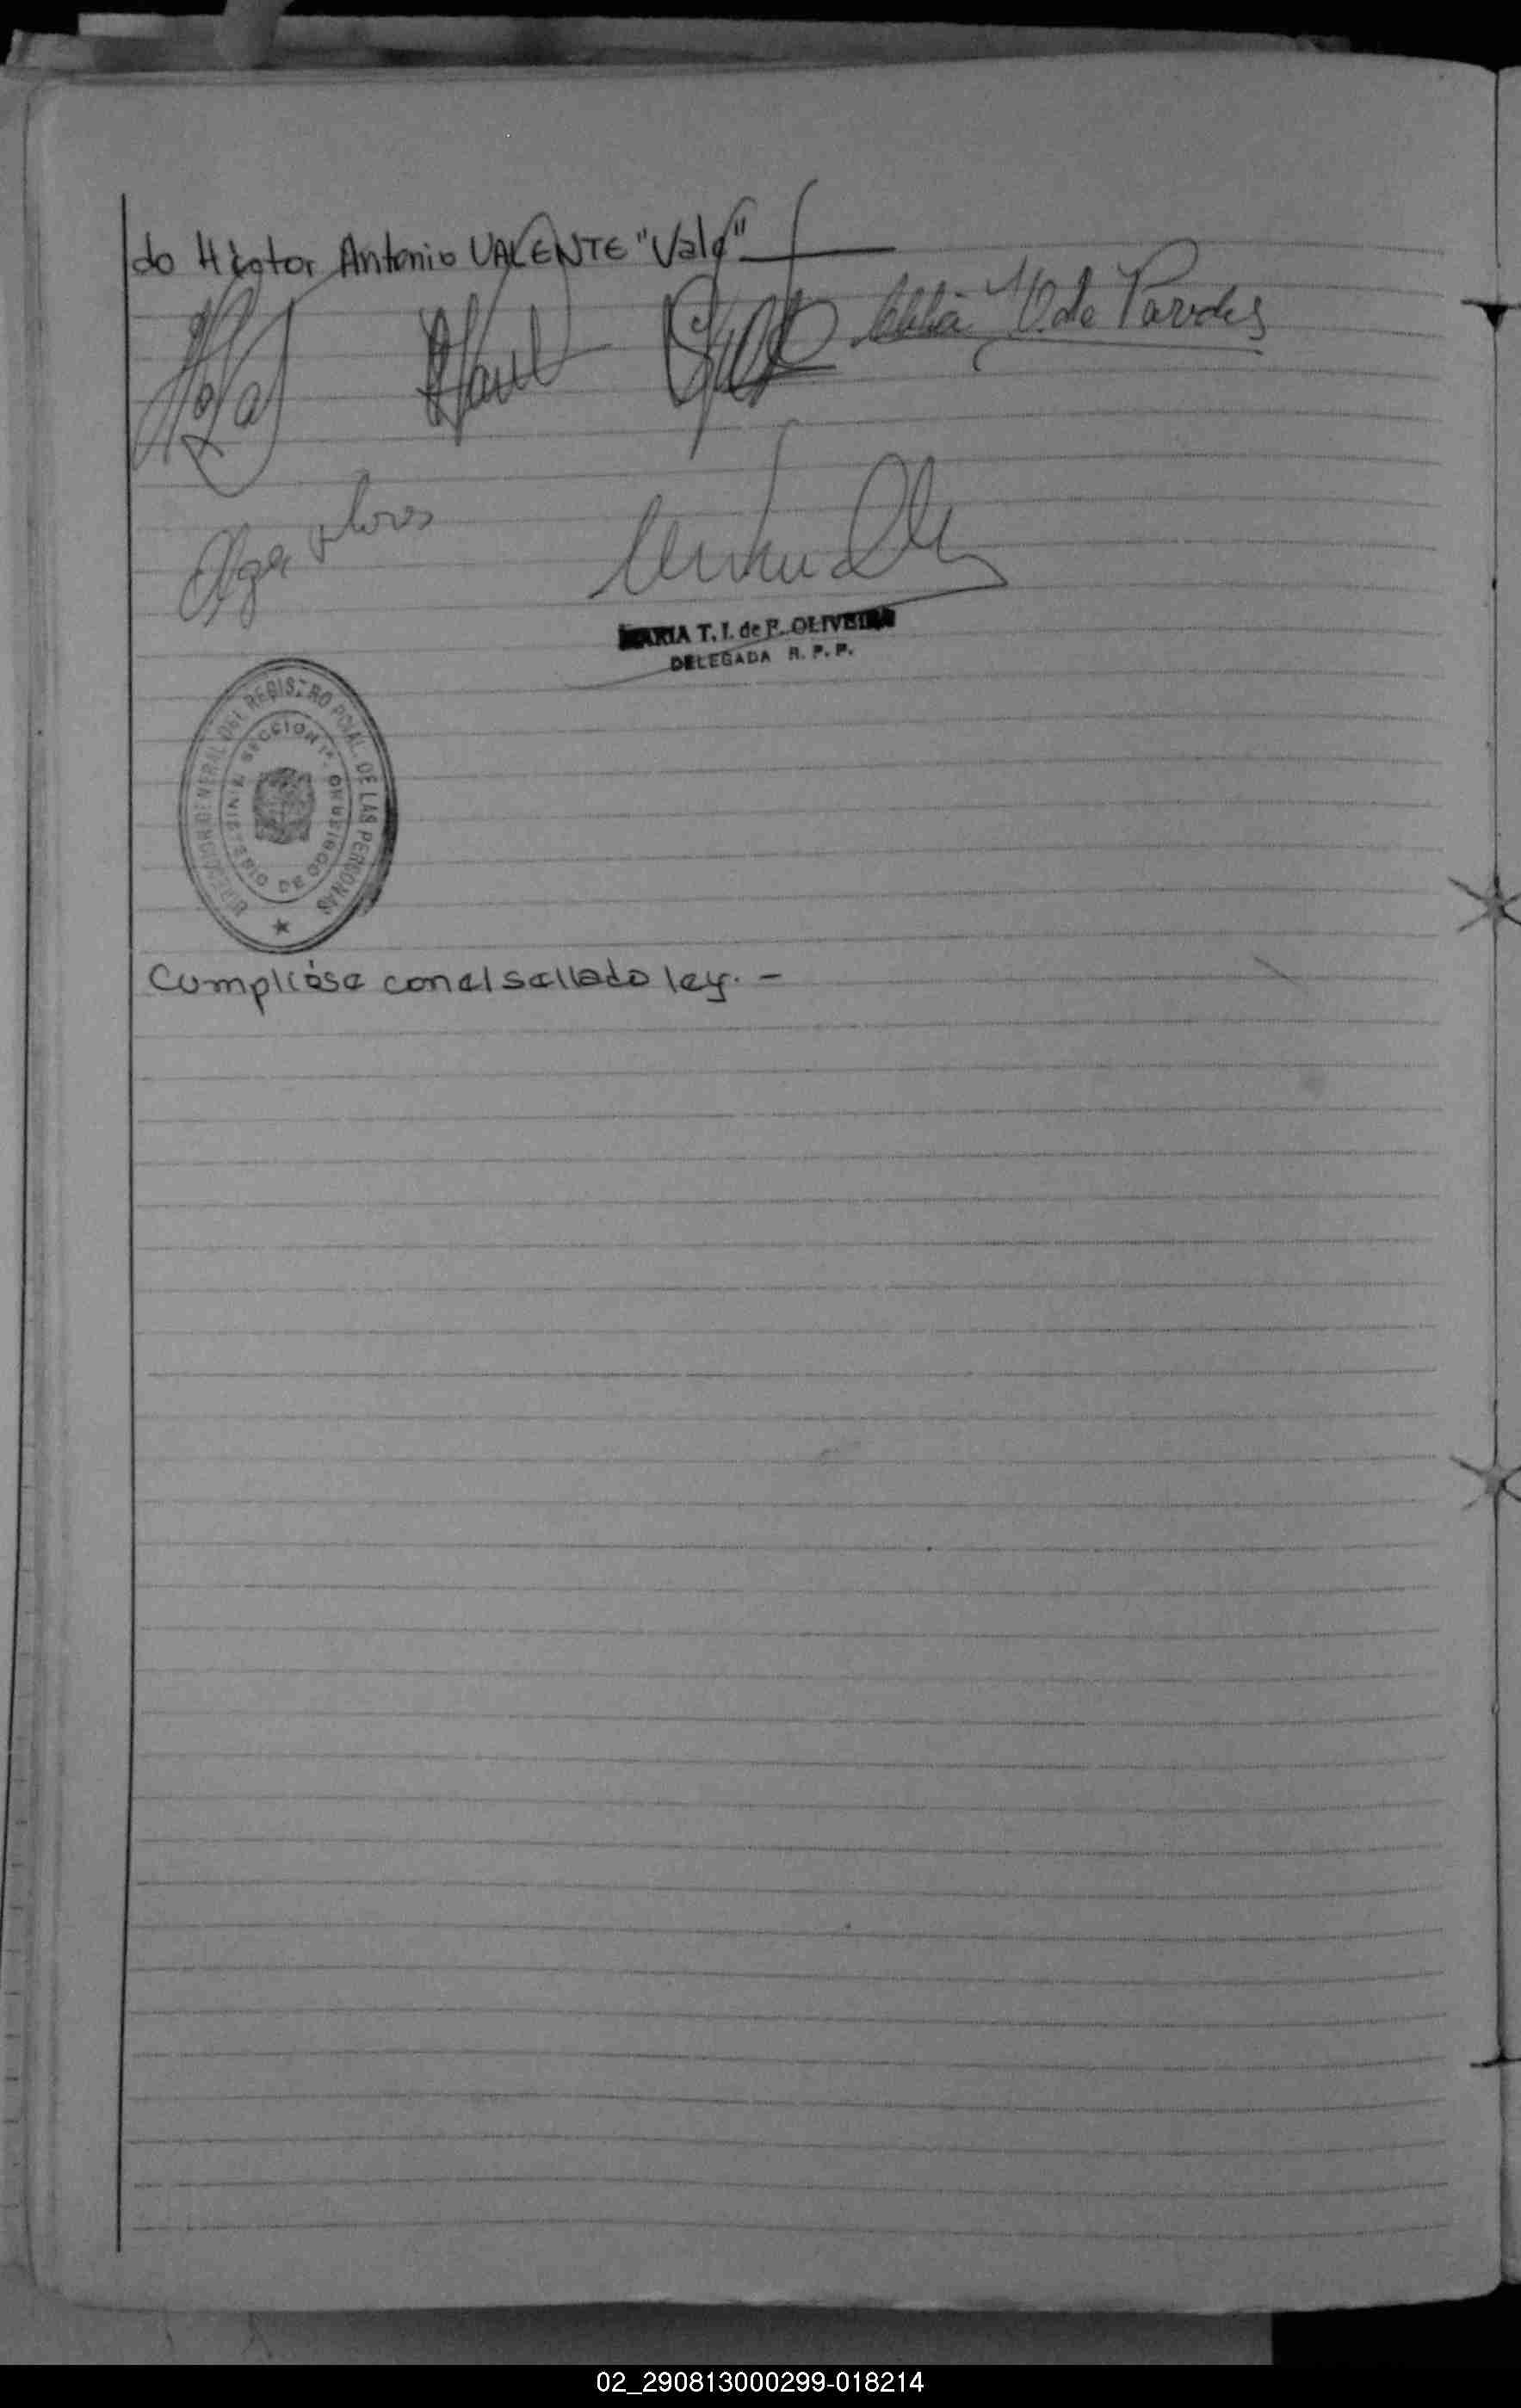 do Héctor Antonio VALENTE "Vale"
V. de Paredes
Olga Flores
MARIA T. I. de P. OLIVEIRA
DELEGADA R. P. P.
DIRECCION GENERAL DEL REGISTRO PCIAL. DE LAS PERSONAS
SECCION 1ª
MINISTERIO DE GOBIERNO
Cumplióse con el sellado ley. -
02_290813000299-018214